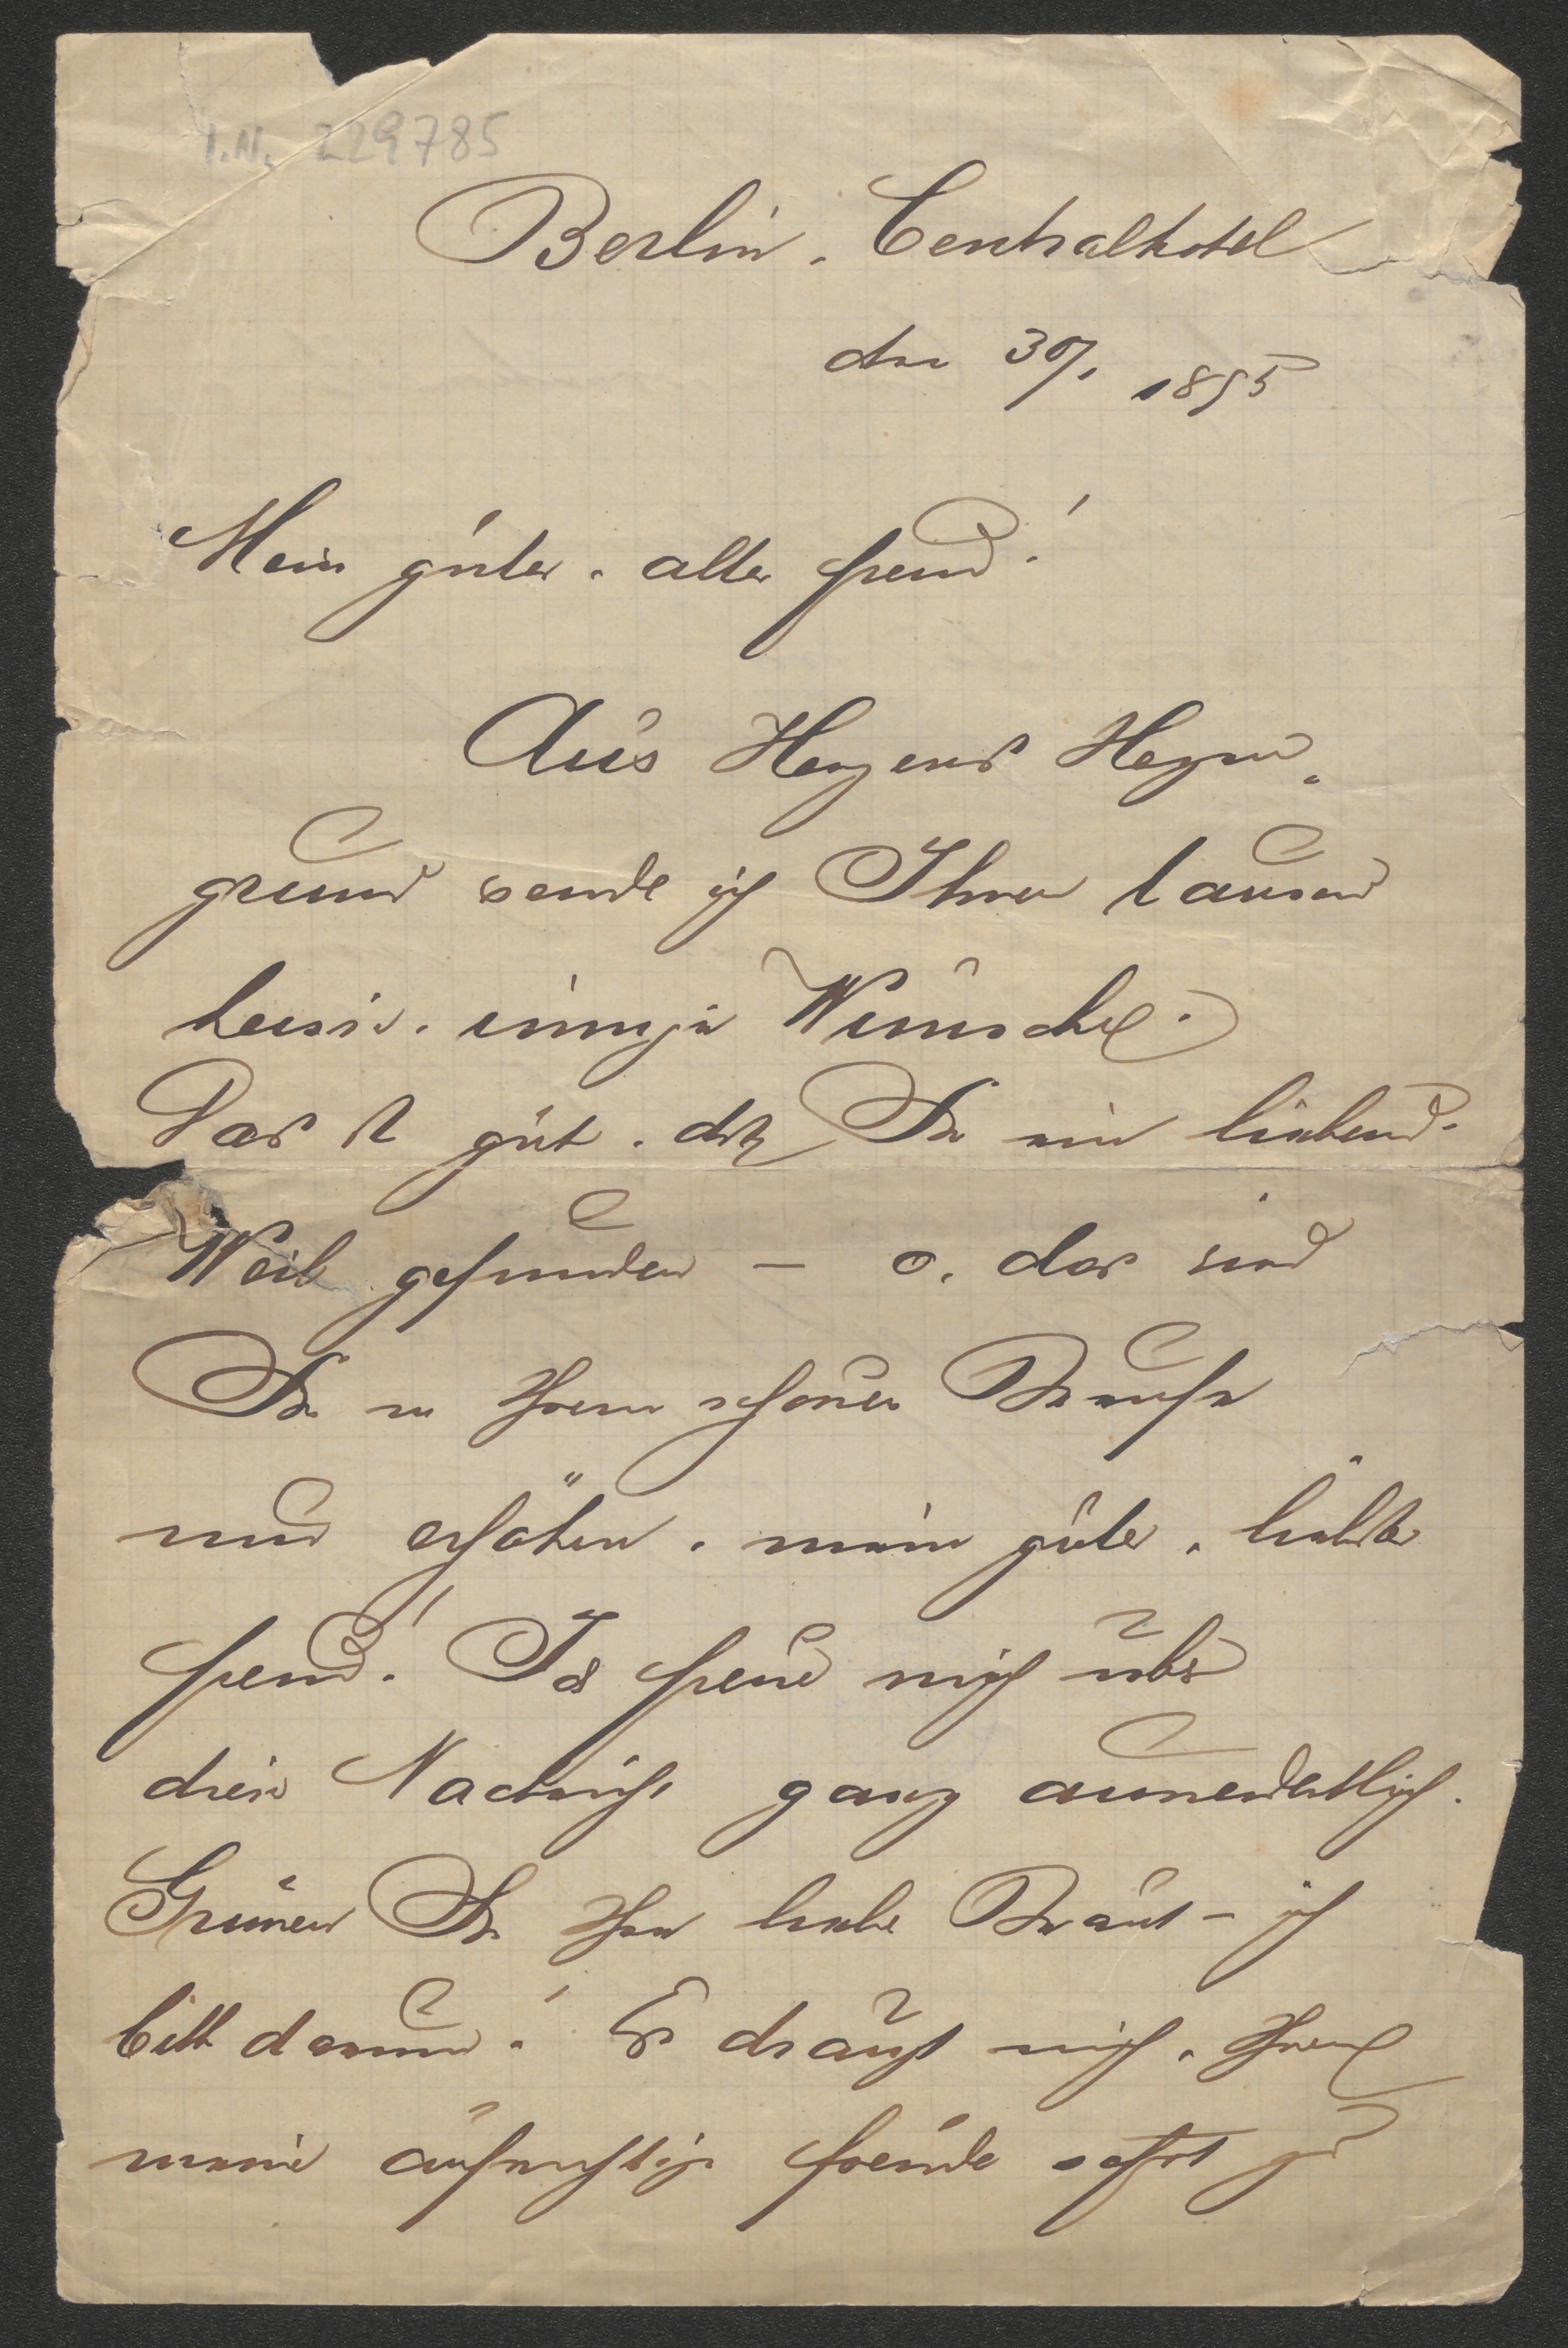 I.N. 229785
Berlin, Centralhotel
den 30/1 1895
Mein guter, alter Freund!
Aus Herzens Herzen,
grund sende ich Ihnen tausend
heisse, innige Wünsche.
Das ist gut, daß Sie ein liebend.
Weib gefunden – o, das wird
Sie in Ihrem schönen Berufe
nur erhöhen, mein guter, liebster
Freund! Ich freue mich über
diese Nachricht ganz
Grüssen Sie Ihre liebe Braut – ich
bitte darum! Es drängt mich, Ihnen
meine aufrichtige Freude sofort zu